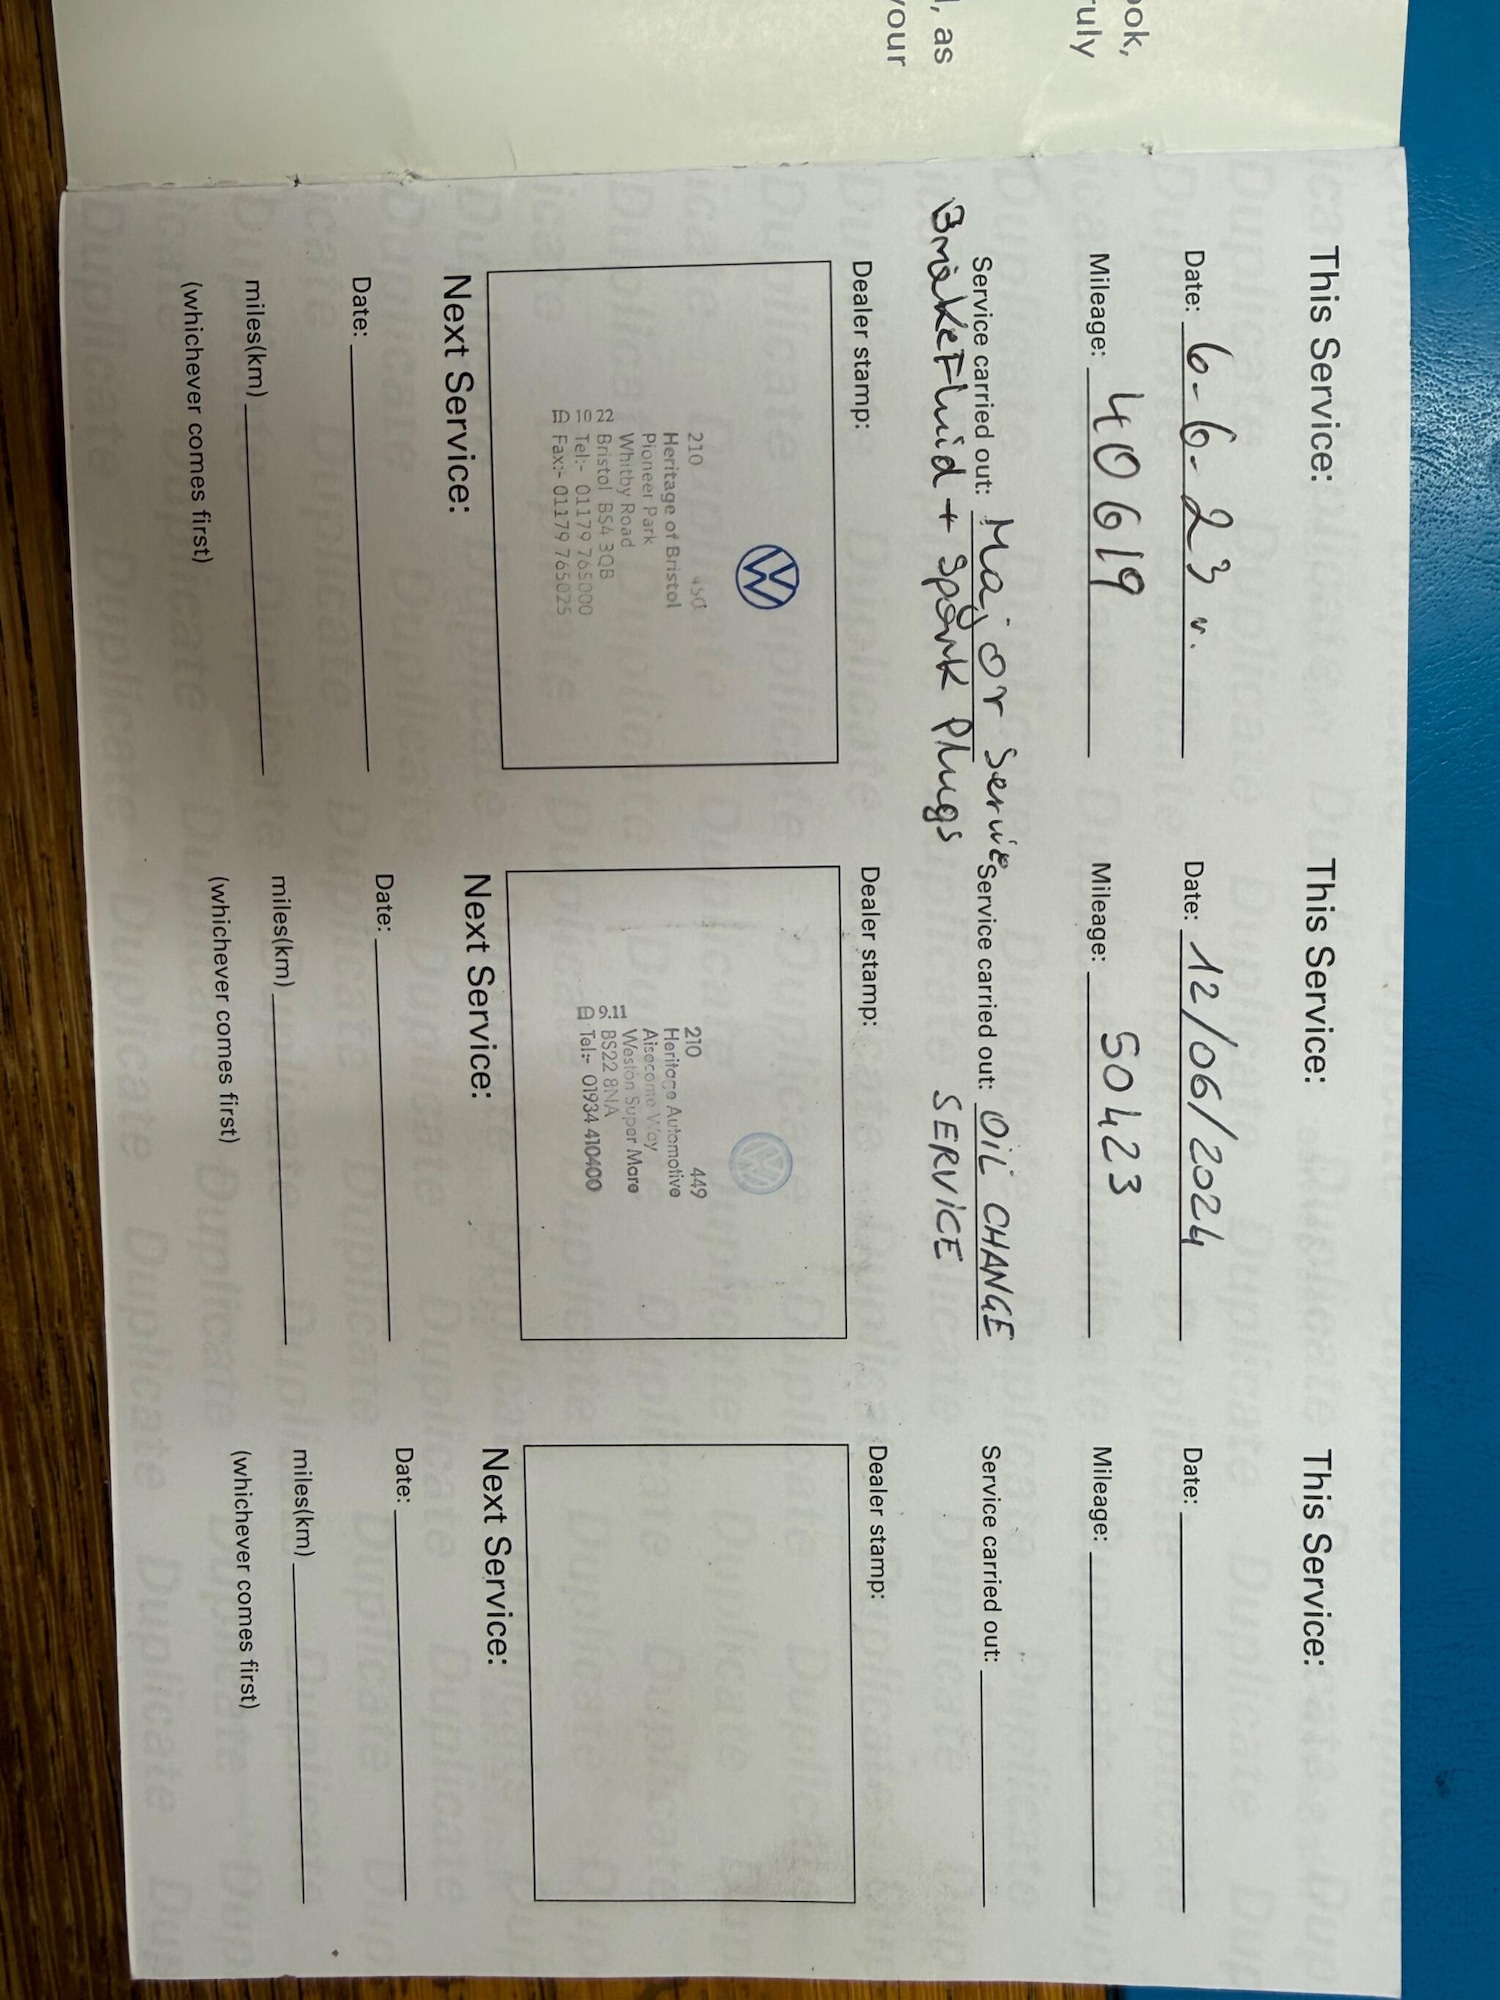 ook,
ruly
l, as
your
This Service:
Date: 6-6-23
Mileage: 40619
Service carried out: Major Service
Brake Fluid + Spark Plugs
Dealer stamp:
210 450
Heritage of Bristol
Pioneer Park
Whitby Road
22 Bristol BS4 3QB
10 Tel:- 01179 765000
Fax:- 01179 765025
Next Service:
Date:
miles(km)
(whichever comes first)
This Service:
Date: 12/06/2024
Mileage: 50423
Service carried out: OIL CHANGE
SERVICE
Dealer stamp:
210 449
Heritage Automotive
Aisecome Way
Weston Super Mare
9.11 BS22 8NA
Tel:- 01934 410400
Next Service:
Date:
miles(km)
(whichever comes first)
This Service:
Date:
Mileage:
Service carried out:
Dealer stamp:
Next Service:
Date:
miles(km)
(whichever comes first)